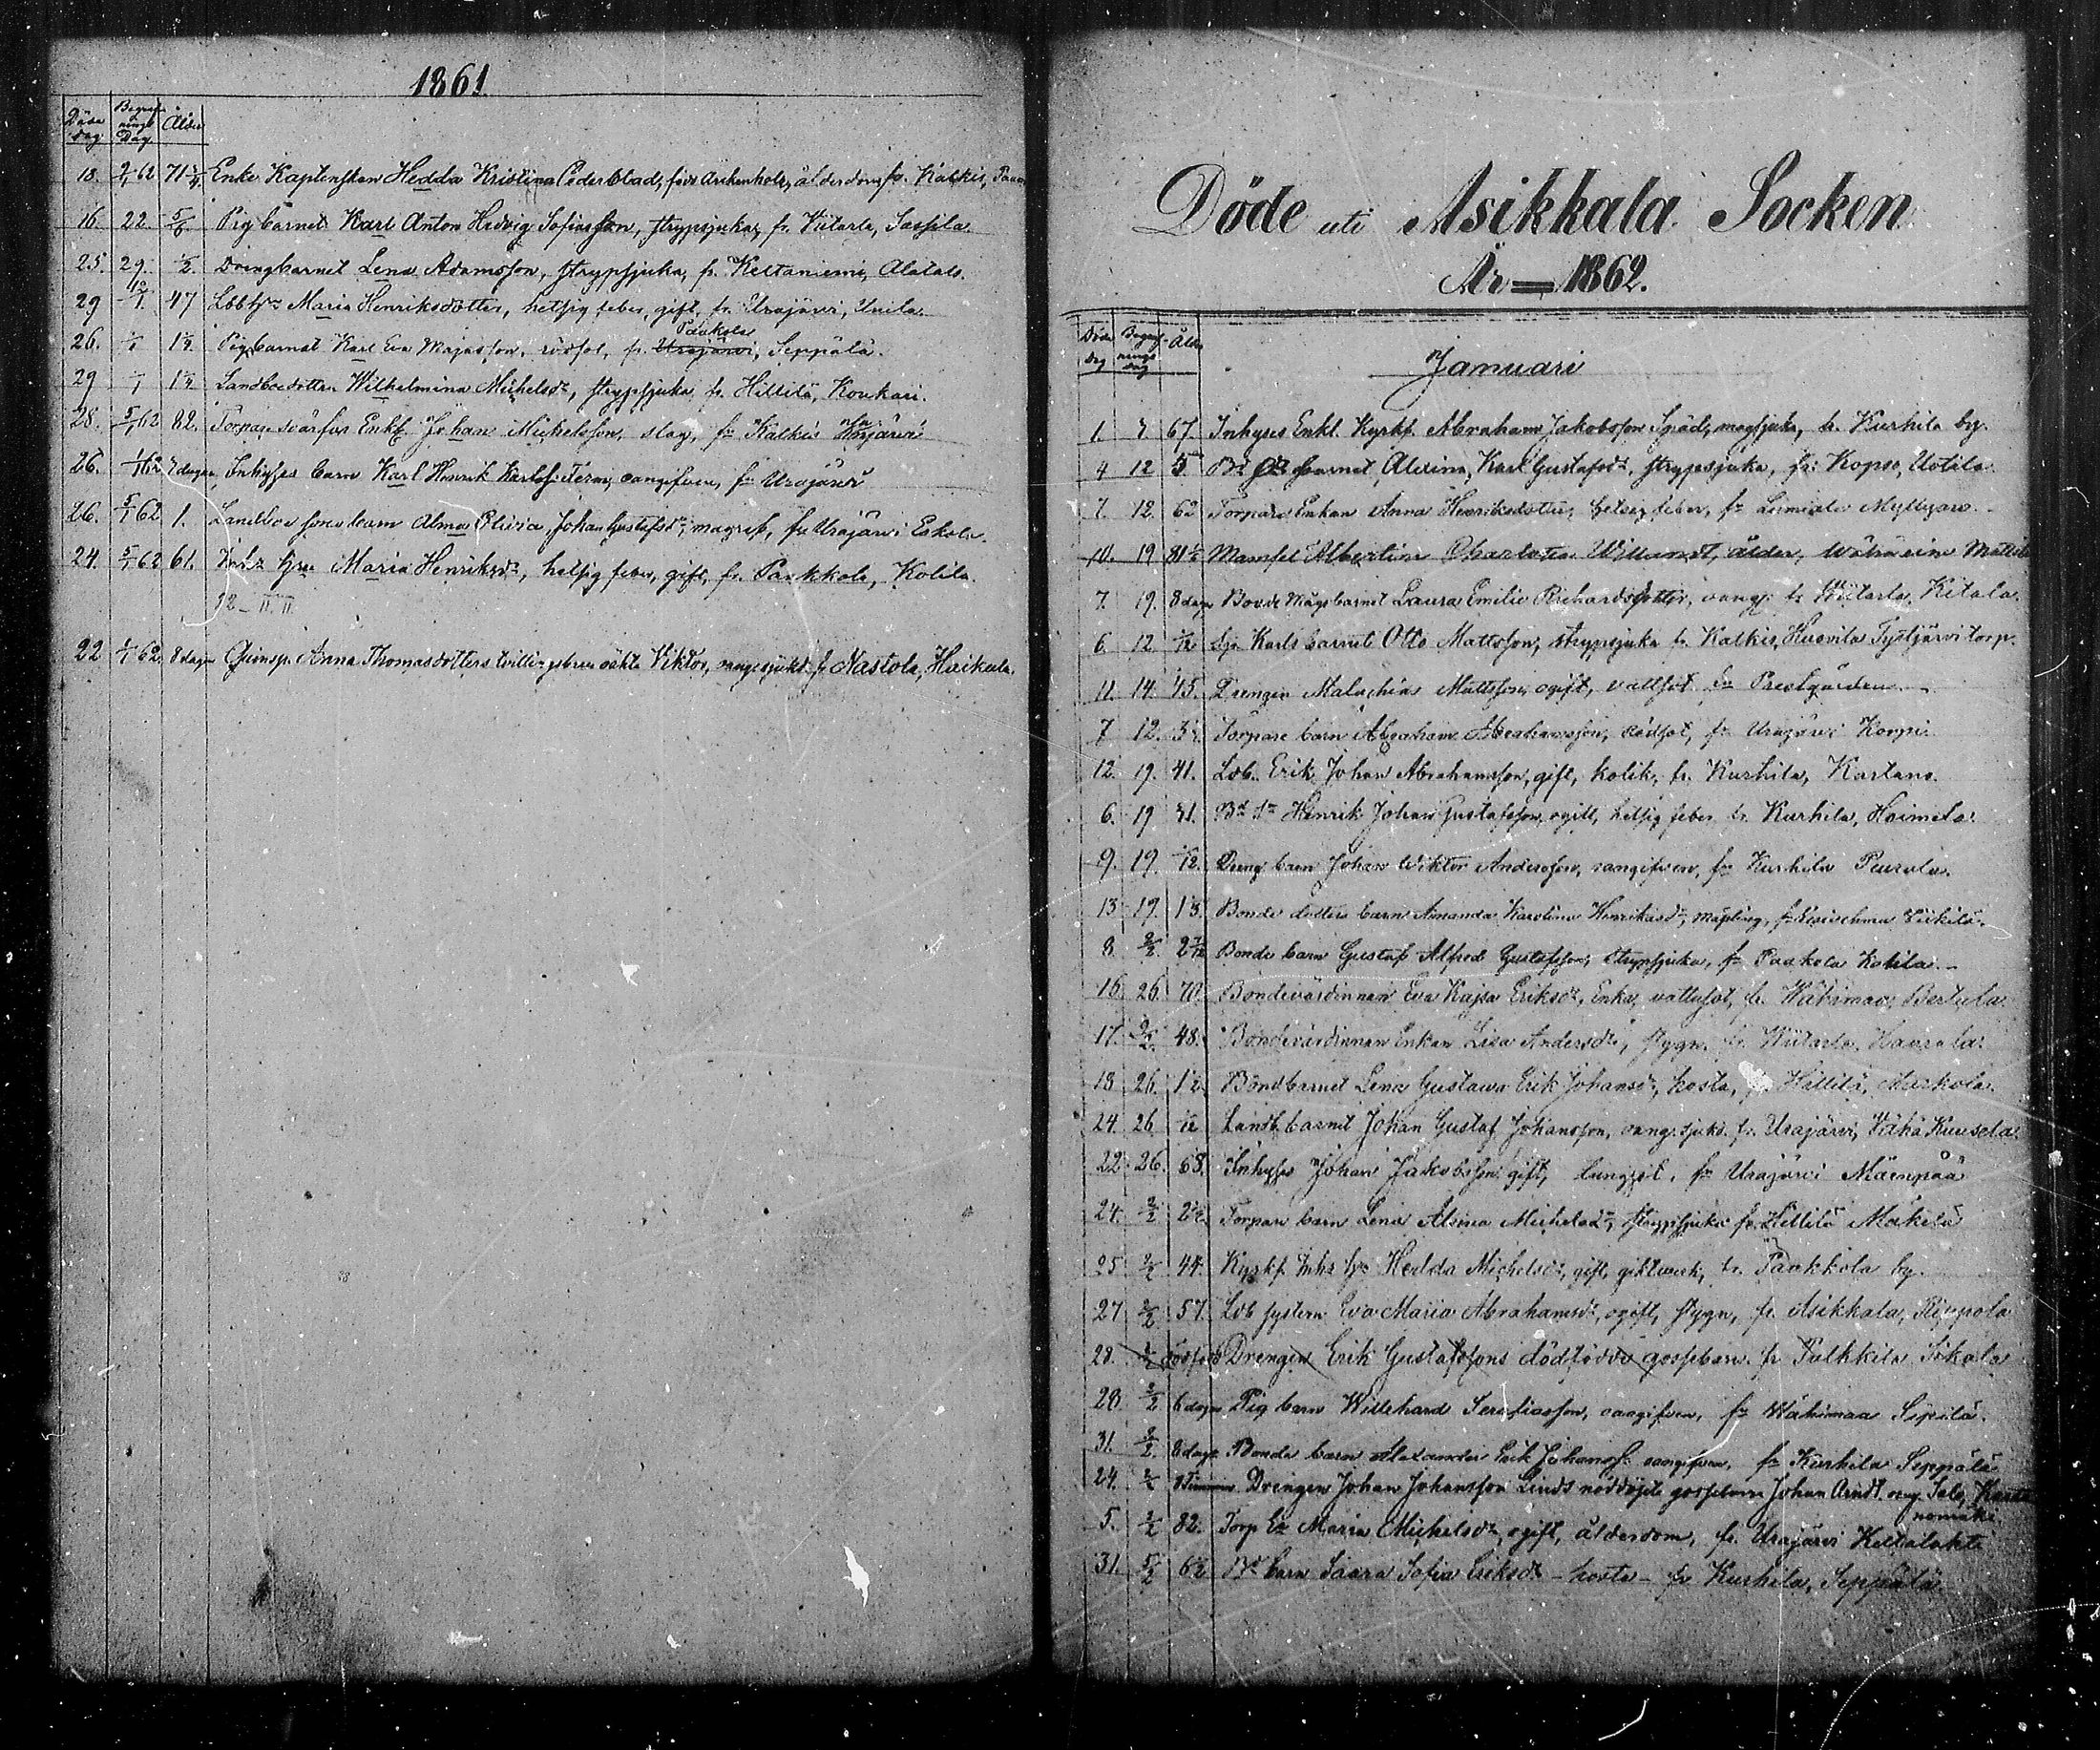 1861.
Döde dag. Begrafnings Dag Ålder
18. 2/1 62 71 1/4 Enke Kaptenskan Hedda Kristina Cederblad, född Arckenholz, ålderdom fr. Kalkis,
16. 22. 5/6 Pig barnet Karl Anton Hedvig Sofiasson, strypsjuka, fr. Viitaila, Sassila
25. 29. 1/2 Drengbarnet Lena Adamsson, strypsjuka, fr. Keltaniemi, Alatalo.
29 12/1. 47 Maria Henriksdotter, hetsig feber, gift, fr. Urajärvi, Unila
Paakola
26. 1 1/2. Pig barnet Karl Eva Majasson, rödsot, fr. Urajärvi, Seppälä.
29 1 1/2 Landboedotter Wilhelmina Michelsdr, strypsjuka fr. Hillilä, Koukari.
28. 5/1 62 82. Torpare svärfar Enkl. Johan Michelsson, slag, fr Kalkis
26. 7 dagar Inhyses barn Karl Henrik Karlss: oangifven, fr Urajärvi
26. 5/1 62 1. Landboe sons barn Alma Olivia Johan Gustafsdr, magref, fr Urajärvi Eskola.
24. 5/1 62 61. Maria Henriksdr, hetsig feber, gift, fr. Paakkola, Kolila.
12 - II II
22 5/1 62. 8 dagar Qvinsp. Anna Thomasdotters tvilling oäkta Viktor, fr Nastola, Haikula.
Döde uti Asikkala Socken
År = 1862.
Döde dag Begrafnings dag Ålder
Januari
1. 67. Inhyses Enkl. Kyrkf. Abraham Jakobsson magsjuka, fr. Kurhila by.
4 12 5 barnet Alerina Karl Gustafsdr, strypsjuka, fr: Kopso, Uotila.
7. 12. Torpare Enkan Anna Henriksdotter, hetsig feber, fr
10. 19 81 1/2 Mamsel Albertina Charlotta ålder, Wähäeimo Mattila
7. 19. 8 dagar Bonde Mågs barnet Laura Emilia Richardsdotter, oang: fr Wiitaila, Kitala.
6. 12 1/12 Karls barnet Otto Mattsson, strypsjuka fr. Kalkis, Huovila Tystjärvi torp.
11. 14. 45. Drengen Malachias Mattsson, ogift, vattsot fr Prestgården.
7 12. 3 1/2. Torpare barn Abraham Abrahamsson, rödsot, fr Urajärvi Korpi.
12. 19. 41. Ldb. Erik Johan Abrahamsson, gift, kolik, fr. Kurhila, Kartano.
6. 19 Henrik Johan Gustafsson, ogift, hetsig feber fr. Kurhila, Heimola.
9. 19. 1/12. Dreng barn Johan Wiktor Andersson, oangifven, fr Kurhila Peurala.
13 19. Bonde dotters barn Amanda Karolina Henriksdr, mäsling,
8 2/2. 2 7/12 Bonde barn Gustaf Alfred Gustafsson, strypsjuka, fr Paakola Kolila.
16. 26. 70. Bondevärdinnan Eva Kajsa Eriksdr, Enka, vattusot, fr. Wähimaa, Bertula.
17. 2/2. 48. Bondevärdinnan Enkan Lisa Andersdr, stygn. fr. Wiitaila,
18 26. 1 1/2. Bondbarnet Lena Gustava Erik Johansdr, hosta, fr. Hillilä, Markola.
24. 26 1/12 Landb. barnet Johan Gustaf Johansson, fr. Urajärvi, Vähä Kuusela
22. 26. 68. Inhyses Johan Jakobsson, gift, lungsot, fr Urajärvi Mäenpää
24. 2/2 2 1/2. Torpare barn Lena Alvina Michelsdr, strypsjuka fr. Hillilä Mäkelä
25 2/2 44. Kyrkf. Inhs Hedda Michelsdr, gift, giktverk, fr. Paakkola by.
27 2/2 57. Ldb systern Eva Maria Abrahamsdr, ogift, stygn, fr. Asikkala, Reppola
28. 2/2 Drengen Erik Gustafssons dödfödda gossebarn fr Pulkkila Sokala
28. 2/2 6 dagar Pig barn Willehard Serafiasson, oangifven, fr Wähimaa Sipilä.
31. 2/2. 8 dagar Bonde barn Alexander Erik Johanss: oangifven, fr Kurhila Seppälä
24. 2/2 Drengen Johan Johansson Linds nöddöpte gossebarn Johan Arndt,
5. 2/2 82. Torp Maria Michelsdr, ogift, ålderdom, fr. Urajärvi Keltalahti
31. 5/2 6 1/2 barn Saara Sofia Eriksdr - hosta - fr Kurhila, Seppälä